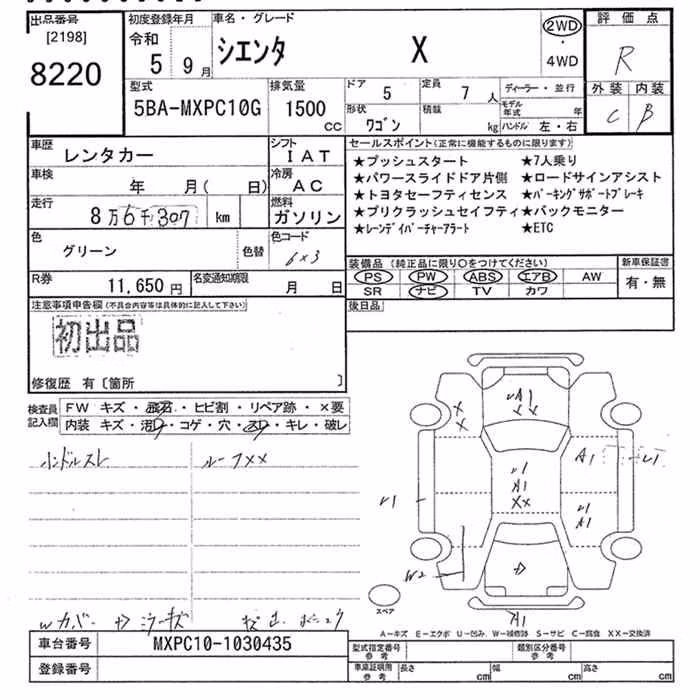 出品番号
[2198]
8220
初度登録年月
令和
5 9月
車名・グレード
シエンタ X
2WD
・
4WD
評価点
R
外装 内装
C B
型式
5BA-MXPC10G
排気量
1500
CC
ドア 5
定員 7 人
形状 ワゴン
積載 kg
ディーラー・並行
モデル年式 年
ハンドル 左・右
車歴
レンタカー
シフト
IAT
車検
年 月( 日)
冷房
AC
走行
8万6千307 km
燃料
ガソリン
色
グリーン
色替
色コード
6×3
R券
11,650円
名変通知期限
月 日
セールスポイント(正常に機能するものに限ります)
★プッシュスタート ★7人乗り
★パワースライドドア片側 ★ロードサインアシスト
★トヨタセーフティセンス ★パーキングサポートブレーキ
★プリクラッシュセイフティ ★バックモニター
★レーンデイパーチャーアラート ★ETC
装備品(純正品に限り○をつけてください)
PS PW ABS エアB AW
SR ナビ TV カワ
新車保証書
有・無
後日品
注意事項申告欄(不具合内容等は具体的に記入して下さい)
初出品
修復歴 有〔箇所 〕
検査員
記入欄
FW キズ・飛石・ヒビ割・リペア跡・×要
内装 キズ・汚レ・コゲ・穴・スレ・キレ・破レ
ハンドルスレ
ルーフXX
A1
X
X
A1
U1
U1
A1
XX
U1
U1
A1
W2
A1
スペア
A−キズ E−エクボ U−凹み W−補修跡 S−サビ C−腐食 XX−交換済
車台番号
MXPC10-1030435
登録番号
型式指定番号
参考
類別区分番号
参考
車庫証明用
参考
長さ cm
幅 cm
高さ cm